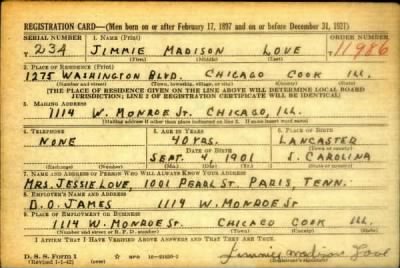 REGISTRATION CARD—(Men born on or after February 17, 1897 and on or before December 31, 1921)
SERIAL NUMBER 1. NAME (Print) ORDER NUMBER
234 JIMMIE MADISON LOVE 11986
(First) (Middle) (Last)
2. PLACE OF RESIDENCE (Print)
1275 WASHINGTON BLVD. CHICAGO COOK ILL.
(Number and street) (Town, township, village, or city) (County) (State)
[THE PLACE OF RESIDENCE GIVEN ON THE LINE ABOVE WILL DETERMINE LOCAL BOARD
JURISDICTION; LINE 2 OF REGISTRATION CERTIFICATE WILL BE IDENTICAL]
3. MAILING ADDRESS
1114 W. MONROE ST. CHICAGO, ILL.
[Mailing address if other than place indicated on line 2. If same insert word same]
4. TELEPHONE 5. AGE IN YEARS 6. PLACE OF BIRTH
NONE 40 YRS. LANCASTER
DATE OF BIRTH (Town or county)
SEPT. 4, 1901 S. CAROLINA
(Exchange) (Number) (Mo.) (Day) (Yr.) (State or country)
7. NAME AND ADDRESS OF PERSON WHO WILL ALWAYS KNOW YOUR ADDRESS
MRS. JESSIE LOVE, 1001 PEARL ST. PARIS, TENN.
8. EMPLOYER'S NAME AND ADDRESS
D.O. JAMES 1114 W. MONROE ST
9. PLACE OF EMPLOYMENT OR BUSINESS
1114 W. MONROE ST CHICAGO COOK ILL.
(Number and street or R. F. D. number) (Town) (County) (State)
I AFFIRM THAT I HAVE VERIFIED ABOVE ANSWERS AND THAT THEY ARE TRUE.
D. S. S. Form 1
(Revised 1-1-42) (over)
Jimmie Madison Love